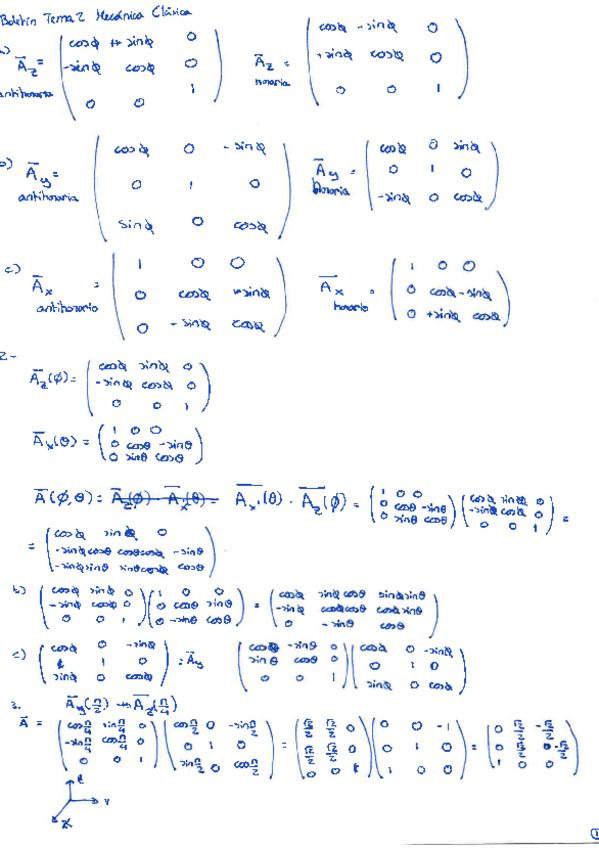 Boletín Tema 2 Mecánica Clásica
a) A̅z antihoraria = ( cosφ +sinφ 0 ; -sinφ cosφ 0 ; 0 0 1 )   A̅z horaria = ( cosφ -sinφ 0 ; +sinφ cosφ 0 ; 0 0 1 )
b) A̅y antihoraria = ( cosφ 0 -sinφ ; 0 1 0 ; sinφ 0 cosφ )   A̅y horaria = ( cosφ 0 sinφ ; 0 1 0 ; -sinφ 0 cosφ )
c) A̅x antihorario = ( 1 0 0 ; 0 cosφ +sinφ ; 0 -sinφ cosφ )   A̅x horario = ( 1 0 0 ; 0 cosφ -sinφ ; 0 +sinφ cosφ )
2-
A̅z(ϕ) = ( cosφ sinφ 0 ; -sinφ cosφ 0 ; 0 0 1 )
A̅x(θ) = ( 1 0 0 ; 0 cosθ -sinθ ; 0 sinθ cosθ )
A̅(ϕ,θ) = A̅z(ϕ) · A̅x(θ) = A̅x'(θ) · A̅z(ϕ) = ( 1 0 0 ; 0 cosθ -sinθ ; 0 sinθ cosθ ) ( cosφ sinφ 0 ; -sinφ cosφ 0 ; 0 0 1 ) =
= ( cosφ sinφ 0 ; -sinφcosθ cosθcosφ -sinθ ; -sinφsinθ sinθcosφ cosθ )
b) ( cosφ sinφ 0 ; -sinφ cosφ 0 ; 0 0 1 ) ( 1 0 0 ; 0 cosθ sinθ ; 0 -sinθ cosθ ) = ( cosφ sinφcosθ sinφsinθ ; -sinφ cosφcosθ cosφsinθ ; 0 -sinθ cosθ )
c) ( cosφ 0 -sinφ ; 1 0 ; sinφ 0 cosφ ) = A̅y   ( cosθ -sinθ 0 ; sinθ cosθ 0 ; 0 0 1 ) ( cosφ 0 -sinφ ; 0 1 0 ; sinφ 0 cosφ )
3. A̅y(π/2) → A̅z(π/4)
A̅ = ( cosπ/4 sinπ/4 0 ; -sinπ/4 cosπ/4 0 ; 0 0 1 ) ( cosπ/2 0 -sinπ/2 ; 0 1 0 ; sinπ/2 0 cosπ/2 ) = ( √2/2 √2/2 0 ; √2/2 √2/2 0 ; 0 0 ) ( 0 0 -1 ; 0 1 0 ; 1 0 0 ) = ( 0 √2/2 -√2/2 ; 0 √2/2 √2/2 ; 1 0 0 )
z
Y
X
1